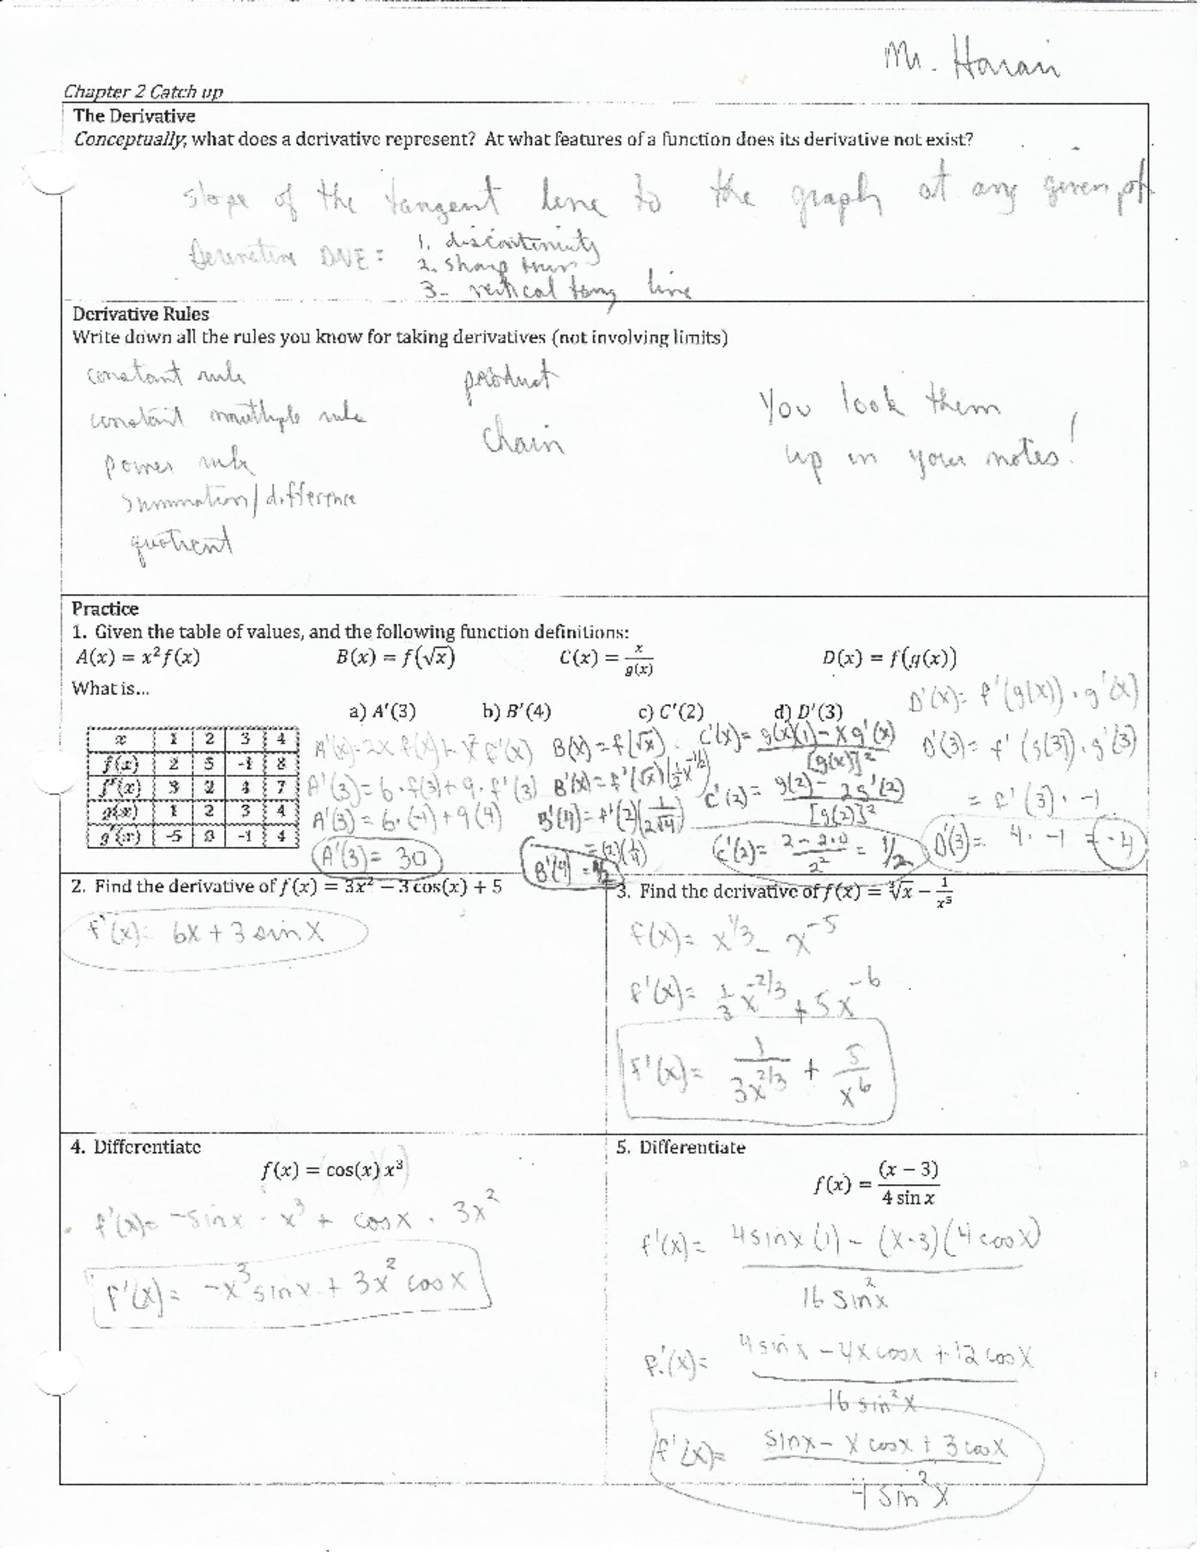 Mr. Haran
Chapter 2 Catch up
The Derivative
Conceptually, what does a derivative represent? At what features of a function does its derivative not exist?
slope of the tangent line to the graph at any given pt
Derivative DNE = 1. discontinuity
2. sharp turn
3. vertical tang line
Derivative Rules
Write down all the rules you know for taking derivatives (not involving limits)
constant rule product
constant multiple rule chain You look them
power rule up in your notes!
summation/difference
quotient
Practice
1. Given the table of values, and the following function definitions:
A(x) = x²f(x) B(x) = f(√x) C(x) = x/g(x) D(x) = f(g(x))
What is...
a) A′(3) b) B′(4) c) C′(2) d) D′(3)
x 1 2 3 4
f(x) 2 5 -1 8
f′(x) 3 2 4 7
g(x) 1 2 3 4
g′(x) -5 0 -1 4
A'(x) = 2x f(x) + x² f'(x)
A'(3) = 6·f(3) + 9·f'(3)
A'(3) = 6·(-1) + 9(4)
A'(3) = 30
B(x) = f(√x)
B'(x) = f'(√x)(½x^-1/2)
B'(4) = f'(2)(1/2√4)
= (2)(1/4)
B'(4) = 1/2
C'(x) = g(x)(1) - xg'(x) / [g(x)]²
C'(2) = g(2) - 2g'(2) / [g(2)]²
C'(2) = 2 - 2·0 / 2² = 1/2
D'(x) = f'(g(x))·g'(x)
D'(3) = f'(g(3))·g'(3)
= f'(3)·-1
D'(3) = 4·-1 = -4
2. Find the derivative of f(x) = 3x² − 3 cos(x) + 5
f'(x) = 6x + 3 sin x
3. Find the derivative of f(x) = ∛x − 1/x⁵
f(x) = x^1/3 - x^-5
f'(x) = 1/3 x^-2/3 + 5x^-6
f'(x) = 1/3x^2/3 + 5/x^6
4. Differentiate
f(x) = cos(x) x³
f'(x) = -sin x · x³ + cos x · 3x²
f'(x) = -x³ sin x + 3x² cos x
5. Differentiate
f(x) = (x − 3)/4 sin x
f'(x) = 4 sin x (1) - (x-3)(4 cos x) / 16 sin² x
f'(x) = 4 sin x - 4x cos x + 12 cos x / 16 sin² x
f'(x) = sin x - x cos x + 3 cos x / 4 sin² x